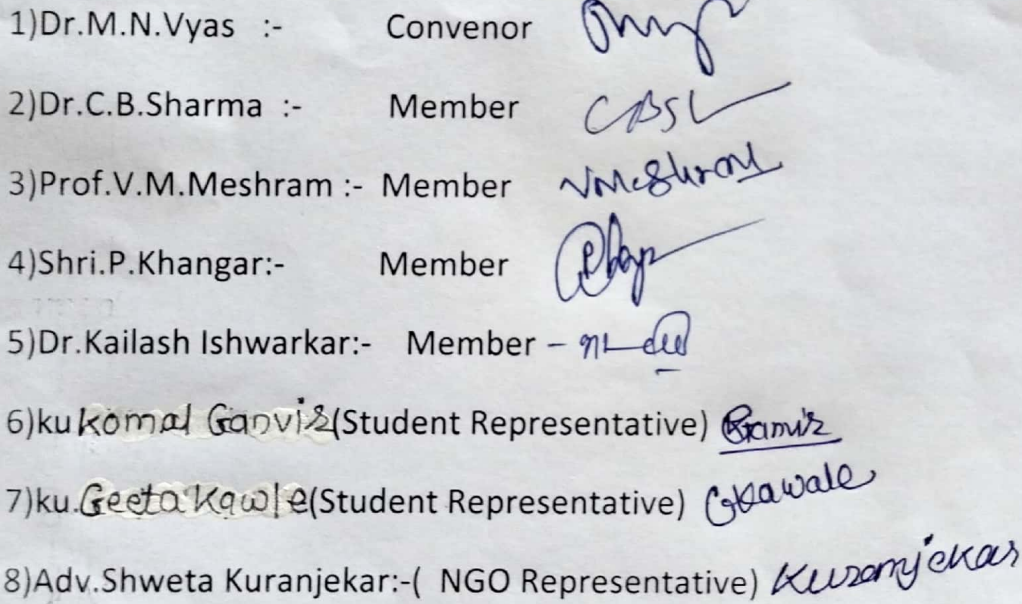 1)Dr.M.N.Vyas :- Convenor
2)Dr.C.B.Sharma :- Member CBSL
3)Prof.V.M.Meshram :- Member VMeshram
4)Shri.P.Khangar:- Member
5)Dr.Kailash Ishwarkar:- Member –
6)ku Komal Ganvir(Student Representative)
7)ku.Geeta Kawle(Student Representative) GKawale
8)Adv.Shweta Kuranjekar:-( NGO Representative) Kuranjekar